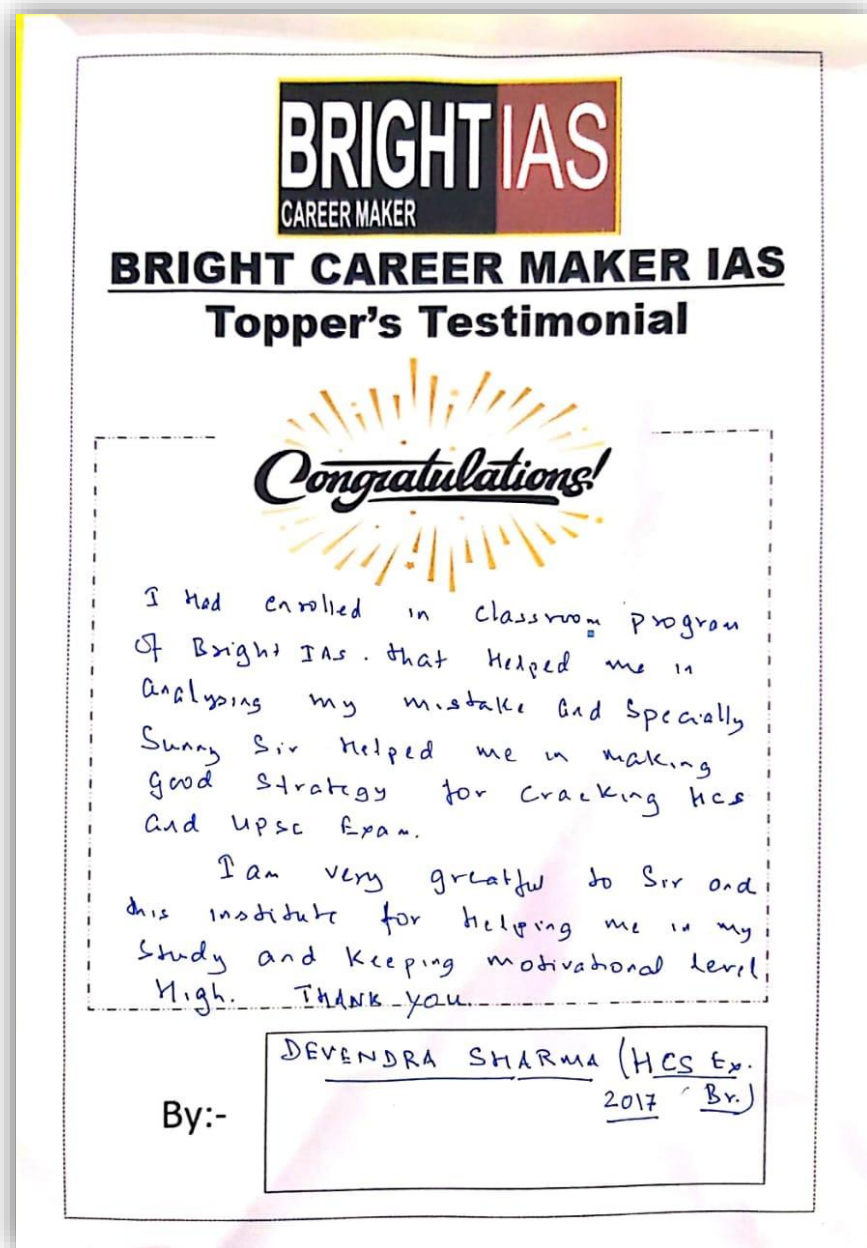 BRIGHT IAS
CAREER MAKER
BRIGHT CAREER MAKER IAS
Topper's Testimonial
Congratulations!
I Had enrolled in classroom program
Of Bright IAS. that Helped me in
analysing my mistake and specially
Sunny Sir Helped me in making
good strategy for cracking HCS
and UPSC Exam.
I am very greatful to Sir and
this institute for Helping me in my
study and keeping motivational level
High. THANK YOU.
DEVENDRA SHARMA (HCS Ex.
2017 Br.)
By:-